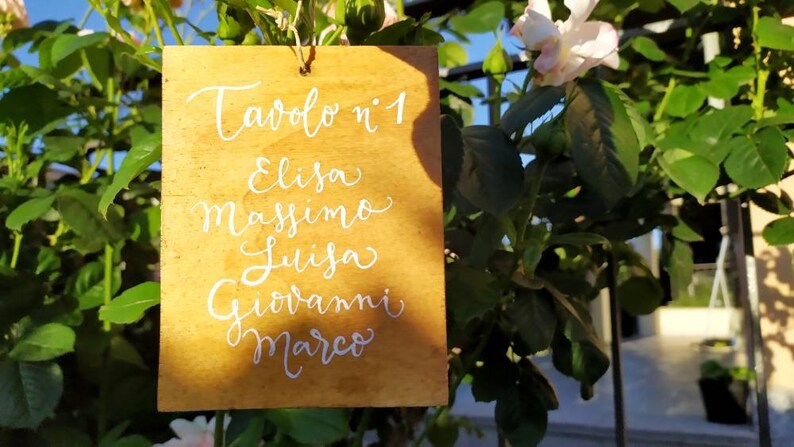 Tavolo n°1
Elisa
Massimo
Luisa
Giovanni
Marco